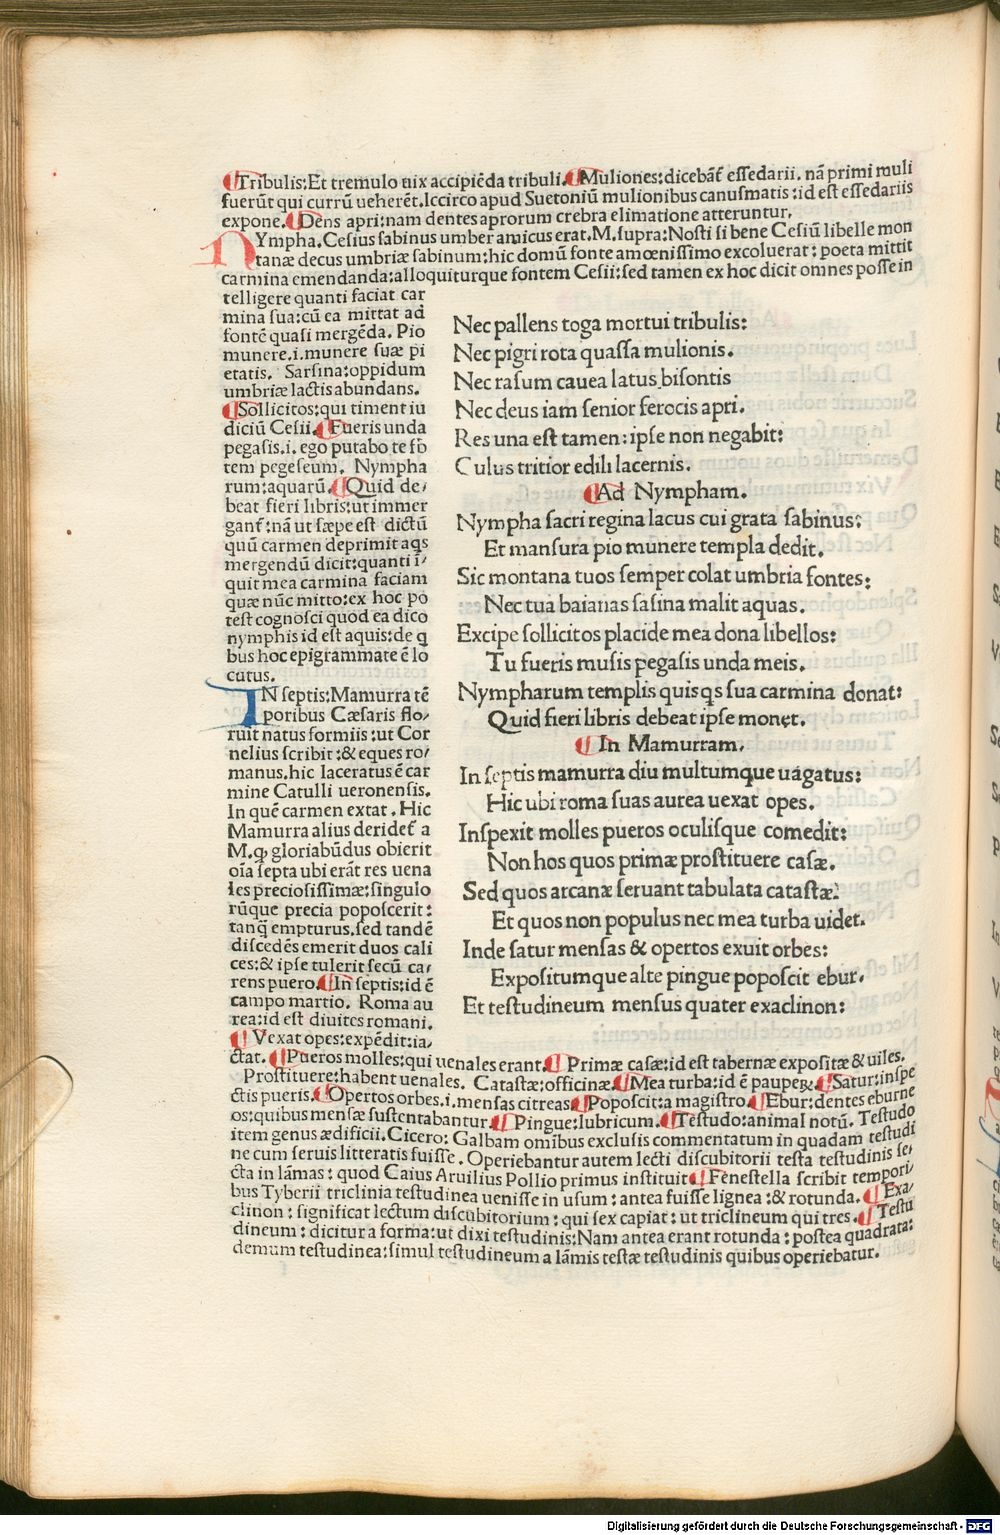 ¶Tribulis:Et tremulo uix accipiēda tribuli.¶Muliones:dicebāt́ eſſedarii. nā primi muli
fuerūt qui currū ueherēt.Iccirco apud Suetoniū mulionibus canuſmatis:id eſt eſſedariis
expone.¶Dens apri:nam dentes aprorum crebra elimatione atteruntur.
NYmpha.Ceſius ſabinus umber amicus erat.M.ſupra:Noſti ſi bene Ceſiū libelle mon
tanæ decus umbriæ ſabinum:hic domū fonte amœniſſimo excoluerat: poeta mittit
carmina emendanda:alloquiturque fontem Ceſii:ſed tamen ex hoc dicit omnes poſſe in
telligere quanti faciat car
mina ſua:cū ea mittat ad
fontē quaſi mergēda. Pio
munere.i.munere ſuæ pi
etatis. Sarſina:oppidum
umbriæ lactis abundans.
¶Sollicitos:qui timent iu
diciū Ceſii.¶Fueris unda
pegaſis.i. ego putabo te fō
tem pegeſeum. Nympha
rum:aquarū.¶Quid de/
beat fieri libris:ut immer
gant́:nā ut ſæpe eſt dictū
quū carmen deprimit aqs
mergendū dicit:quanti ī/
quit mea carmina faciam
quæ nūc mitto:ex hoc po
teſt cognoſci quod ea dico
nymphis id eſt aquis:de q
bus hoc epigrammate ē lo
cutus.
IN ſeptis:Mamurra tē
poribus Cæſaris flo/
ruit natus formiis:ut Cor
nelius ſcribit:& eques ro/
manus.hic laceratus ē car
mine Catulli ueronenſis.
In quē carmen extat. Hic
Mamurra alius deridet́ a
M.ꝙ gloriabūdus obierit
oīa ſepta ubi erāt res uena
les precioſiſſimæ:ſingulo
rūque precia popoſcerit:
tanq̄ empturus.ſed tandē
diſcedēs emerit duos cali
ces:& ipſe tulerit ſecū ca/
rens puero.¶In ſeptis:id ē
campo martio. Roma au
rea:id eſt diuites romani.
¶Vexat opes:expēdit:ia/
ctat. ¶Pueros molles:qui uenales erant.¶Primæ caſæ:id eſt tabernæ expoſitæ & uiles.
Nec pallens toga mortui tribulis:
Nec pigri rota quaſſa mulionis.
Nec raſum cauea latus biſontis
Nec deus iam ſenior ferocis apri.
Res una eſt tamen:ipſe non negabit:
Culus tritior edili lacernis.
¶Ad Nympham.
Nympha ſacri regina lacus cui grata ſabinus:
Et manſura pio munere templa dedit.
Sic montana tuos ſemper colat umbria fontes:
Nec tua baianas ſaſina malit aquas.
Excipe ſollicitos placide mea dona libellos:
Tu fueris muſis pegaſis unda meis.
Nympharum templis quisqs ſua carmina donat:
Quid fieri libris debeat ipſe monet.
¶In Mamurram.
In ſeptis mamurra diu multumque uagatus:
Hic ubi roma ſuas aurea uexat opes.
Inſpexit molles pueros oculiſque comedit:
Non hos quos primæ proſtituere caſæ.
Sed quos arcanæ ſeruant tabulata cataſtæ:
Et quos non populus nec mea turba uidet.
Inde ſatur menſas & opertos exuit orbes:
Expoſitumque alte pingue popoſcit ebur.
Et teſtudineum menſus quater exaclinon:
Proſtituere:habent uenales. Cataſtæ:officinæ.¶Mea turba:id ē pauperꝝ.¶Satur:inſpe
ctis pueris.¶Opertos orbes.i.menſas citreas¶Popoſcit:a magiſtro.¶Ebur:dentes eburne
os:quibus menſæ ſuſtentabantur.¶Pingue:lubricum.¶Teſtudo:animal notū. Teſtudo
item genus ædificii.Cicero:Galbam omībus excluſis commentatum in quadam teſtudi
ne cum ſeruis litteratis fuiſſe.Operiebantur autem lecti diſcubitorii teſta teſtudinis ſe/
cta in lāmas:quod Caius Aruilius Pollio primus inſtituit¶Feneſtella ſcribit tempori/
bus Tyberii triclinia teſtudinea ueniſſe in uſum:antea fuiſſe lignea:& rotunda.¶Exa/
clinon:ſignificat lectum diſcubitorium:qui ſex capiat:ut triclineum qui tres.¶Teſtu
dineum:dicitur a forma:ut dixi teſtudinis:Nam antea erant rotunda:poſtea quadrata:
demum teſtudinea:ſimul teſtudineum a lāmis teſtæ teſtudinis quibus operiebatur.
Digitalisierung gefördert durch die Deutsche Forschungsgemeinschaft - DFG